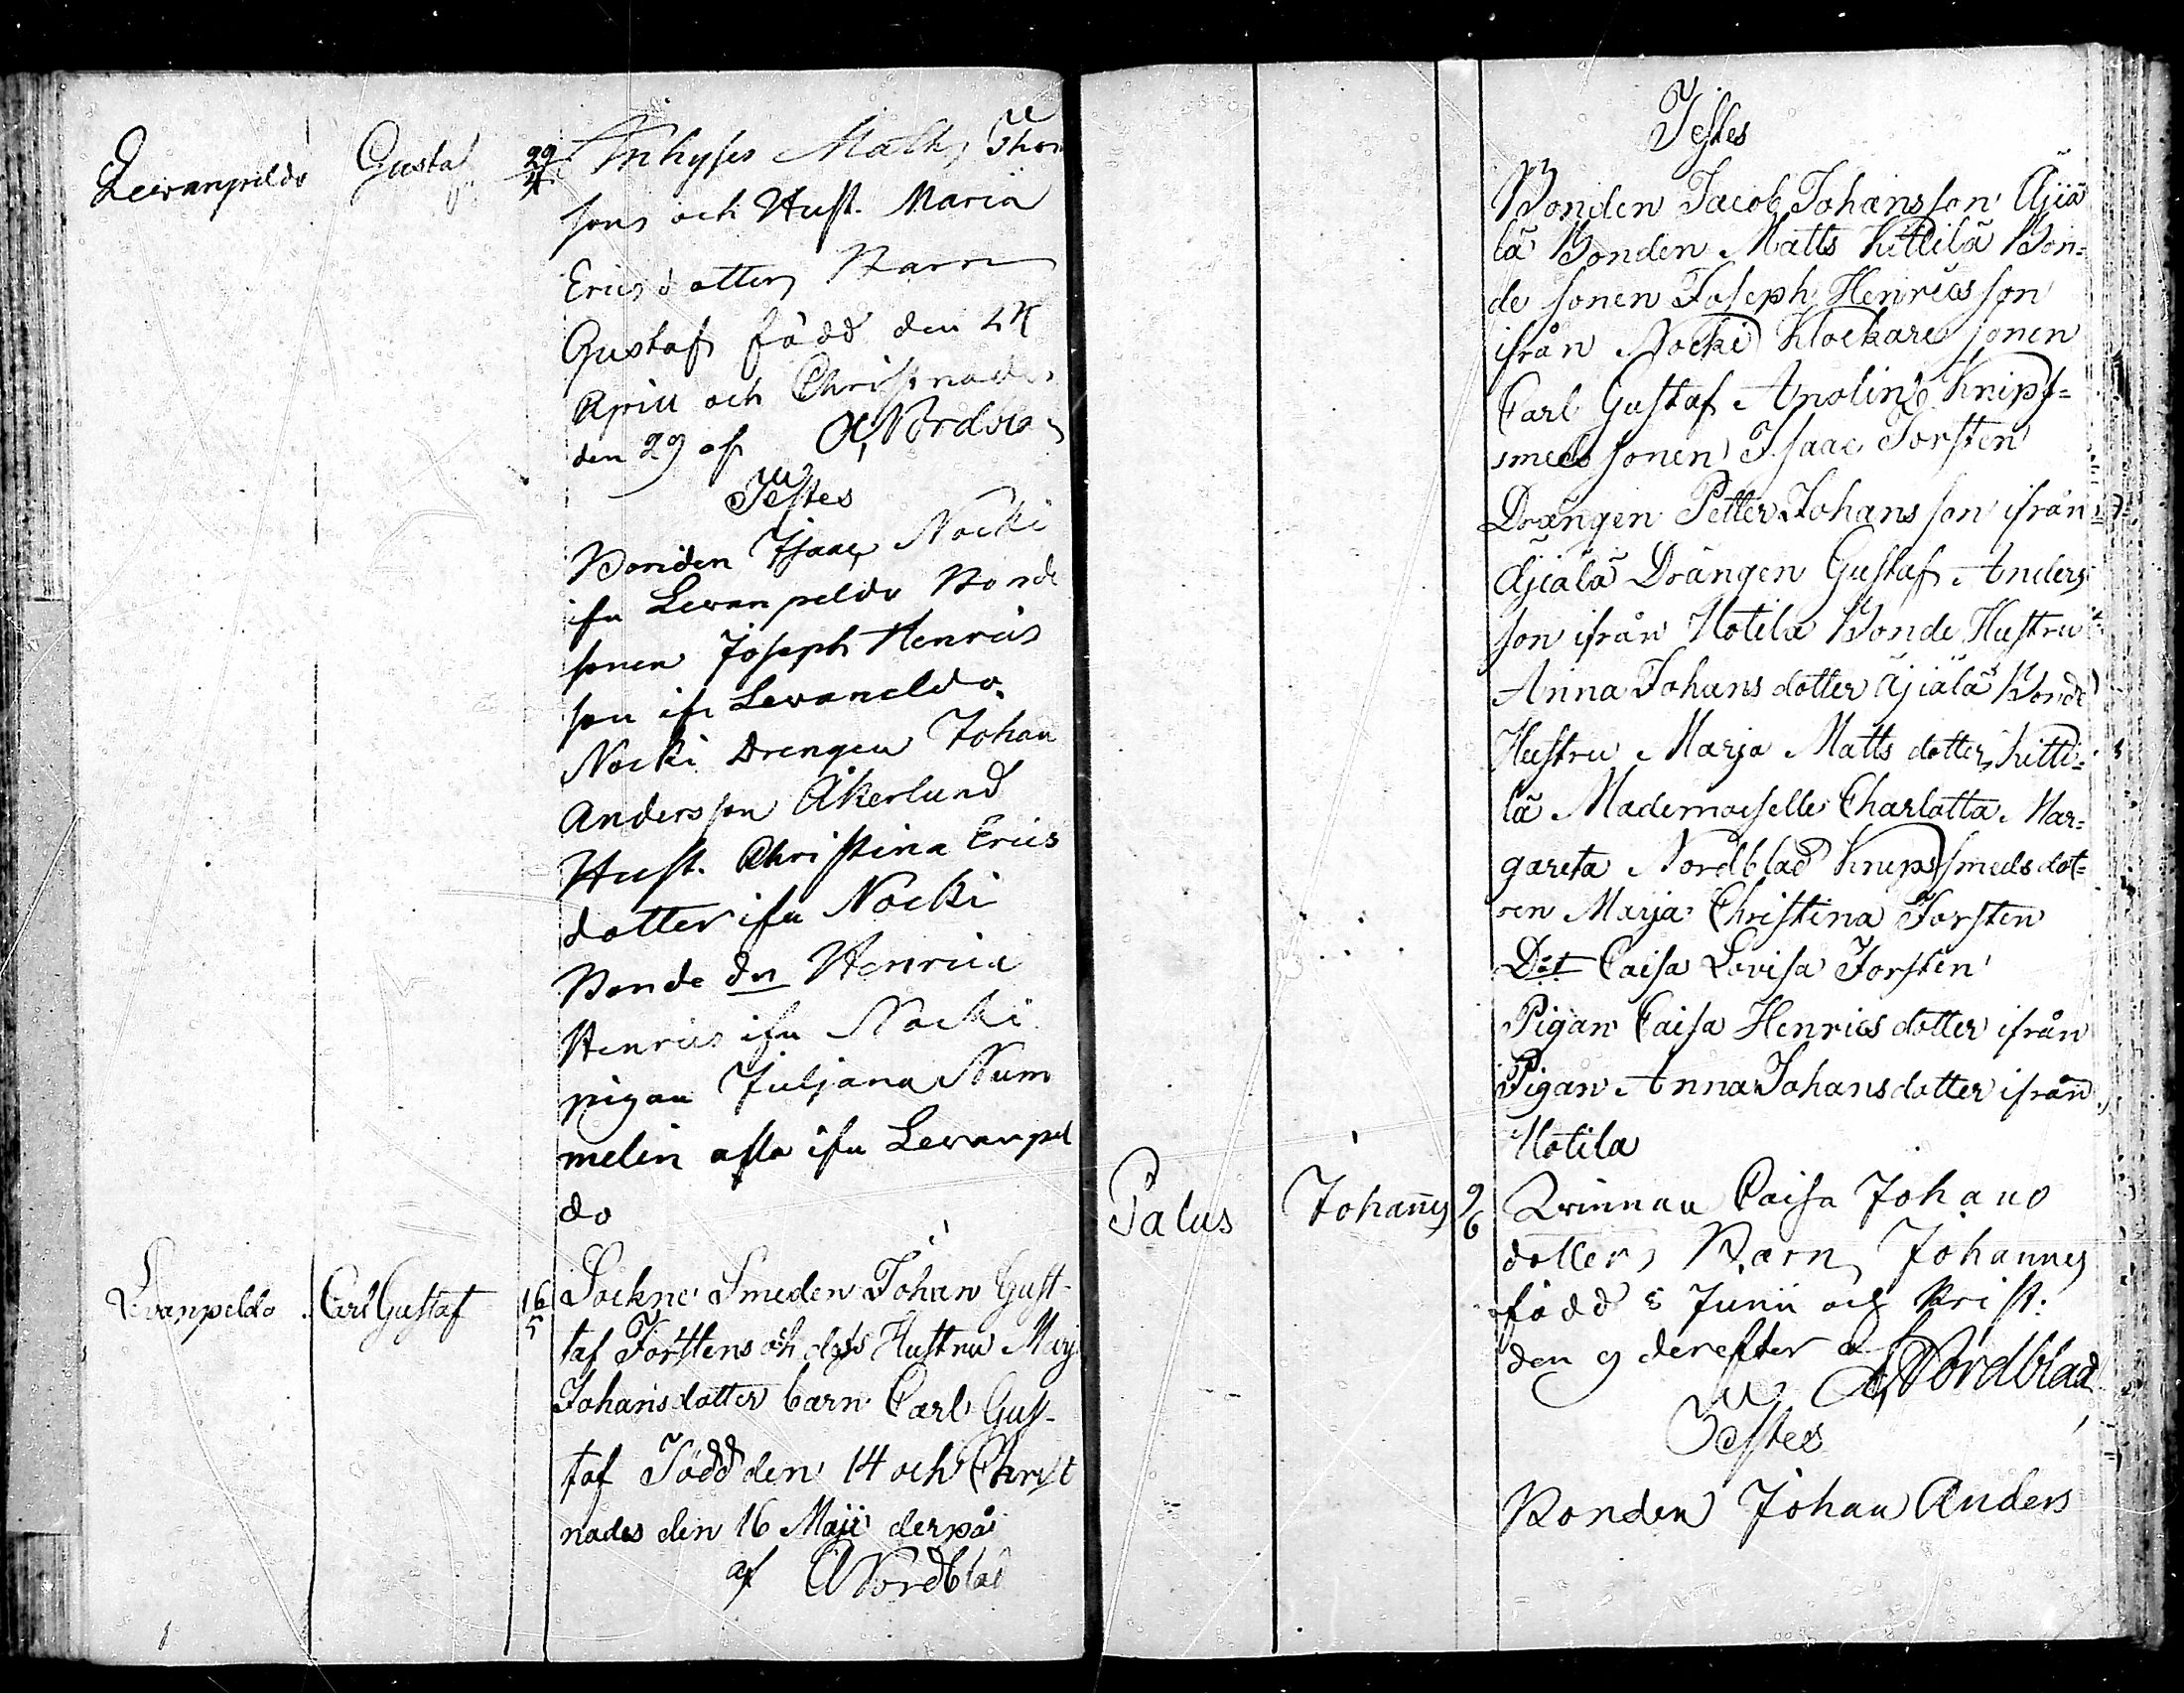 Lewanpeldo Gustaf 29/4 Inhyses Matts Thom
sons och Hust. Maria
Ericsdotters Barn
Gustaf född den 24
Aprill och Christnades
den 29 af A, Nordbla
Testes
Bonden Isaac Nocki
ifn Lewanpeldo Bonde
sonen Joseph Henrics
son ifn Lewaneldo
Nocki Drengen Johan
Andersson Åkerlund
Hust. Christina Erics
dotter ifn Nocki
Bonde dn Henrica
Henrics ifn Nocki
pigan Juljana Num
melin alla ifn Lewanpel
do
Lewanpeldo Carl Gustaf 16/5 Sockne Smeden Johan Gust-
taf Forstens och dess Hustru Marj
Johansdotter barn Carl Gus-
taf Född den 14 och Christ
nades den 16 Maji derpå
af A Nordblad
Testes
Bonden Jacob Johansson Äjiä
lä Bonden Matts Kittilä Bon=
de sonen Joseph Henricsson
ifrån Nocki Klockare sonen
Carl Gustaf Anolin Knipf=
smeds sonen Isaac Forsten
Drängen Petter Johansson ifrån
Äjiälä Drängen Gustaf Anders
son ifrån Hotila Bonde Hustru
Anna Johans dotter Äjiälä Bonde
Hustru Marja Matts dotter Kitti=
lä Mademoiselle Charlotta Mar=
gareta Nordblad Knipssmeds dot=
ren Marja Christina Forsten
Dot Caisa Lovisa Forsten
Pigan Caisa Henrics dotter ifrån
Pigan Anna Johansdotter ifrån
Hotila
Palus Johannes 9/6 Qvinnan Caisa Johans
dotters Barn Johannes
född 8 Junii och Krist:
den 9 derefter a A, Nordblad
Testes
Bonden Johan Anders